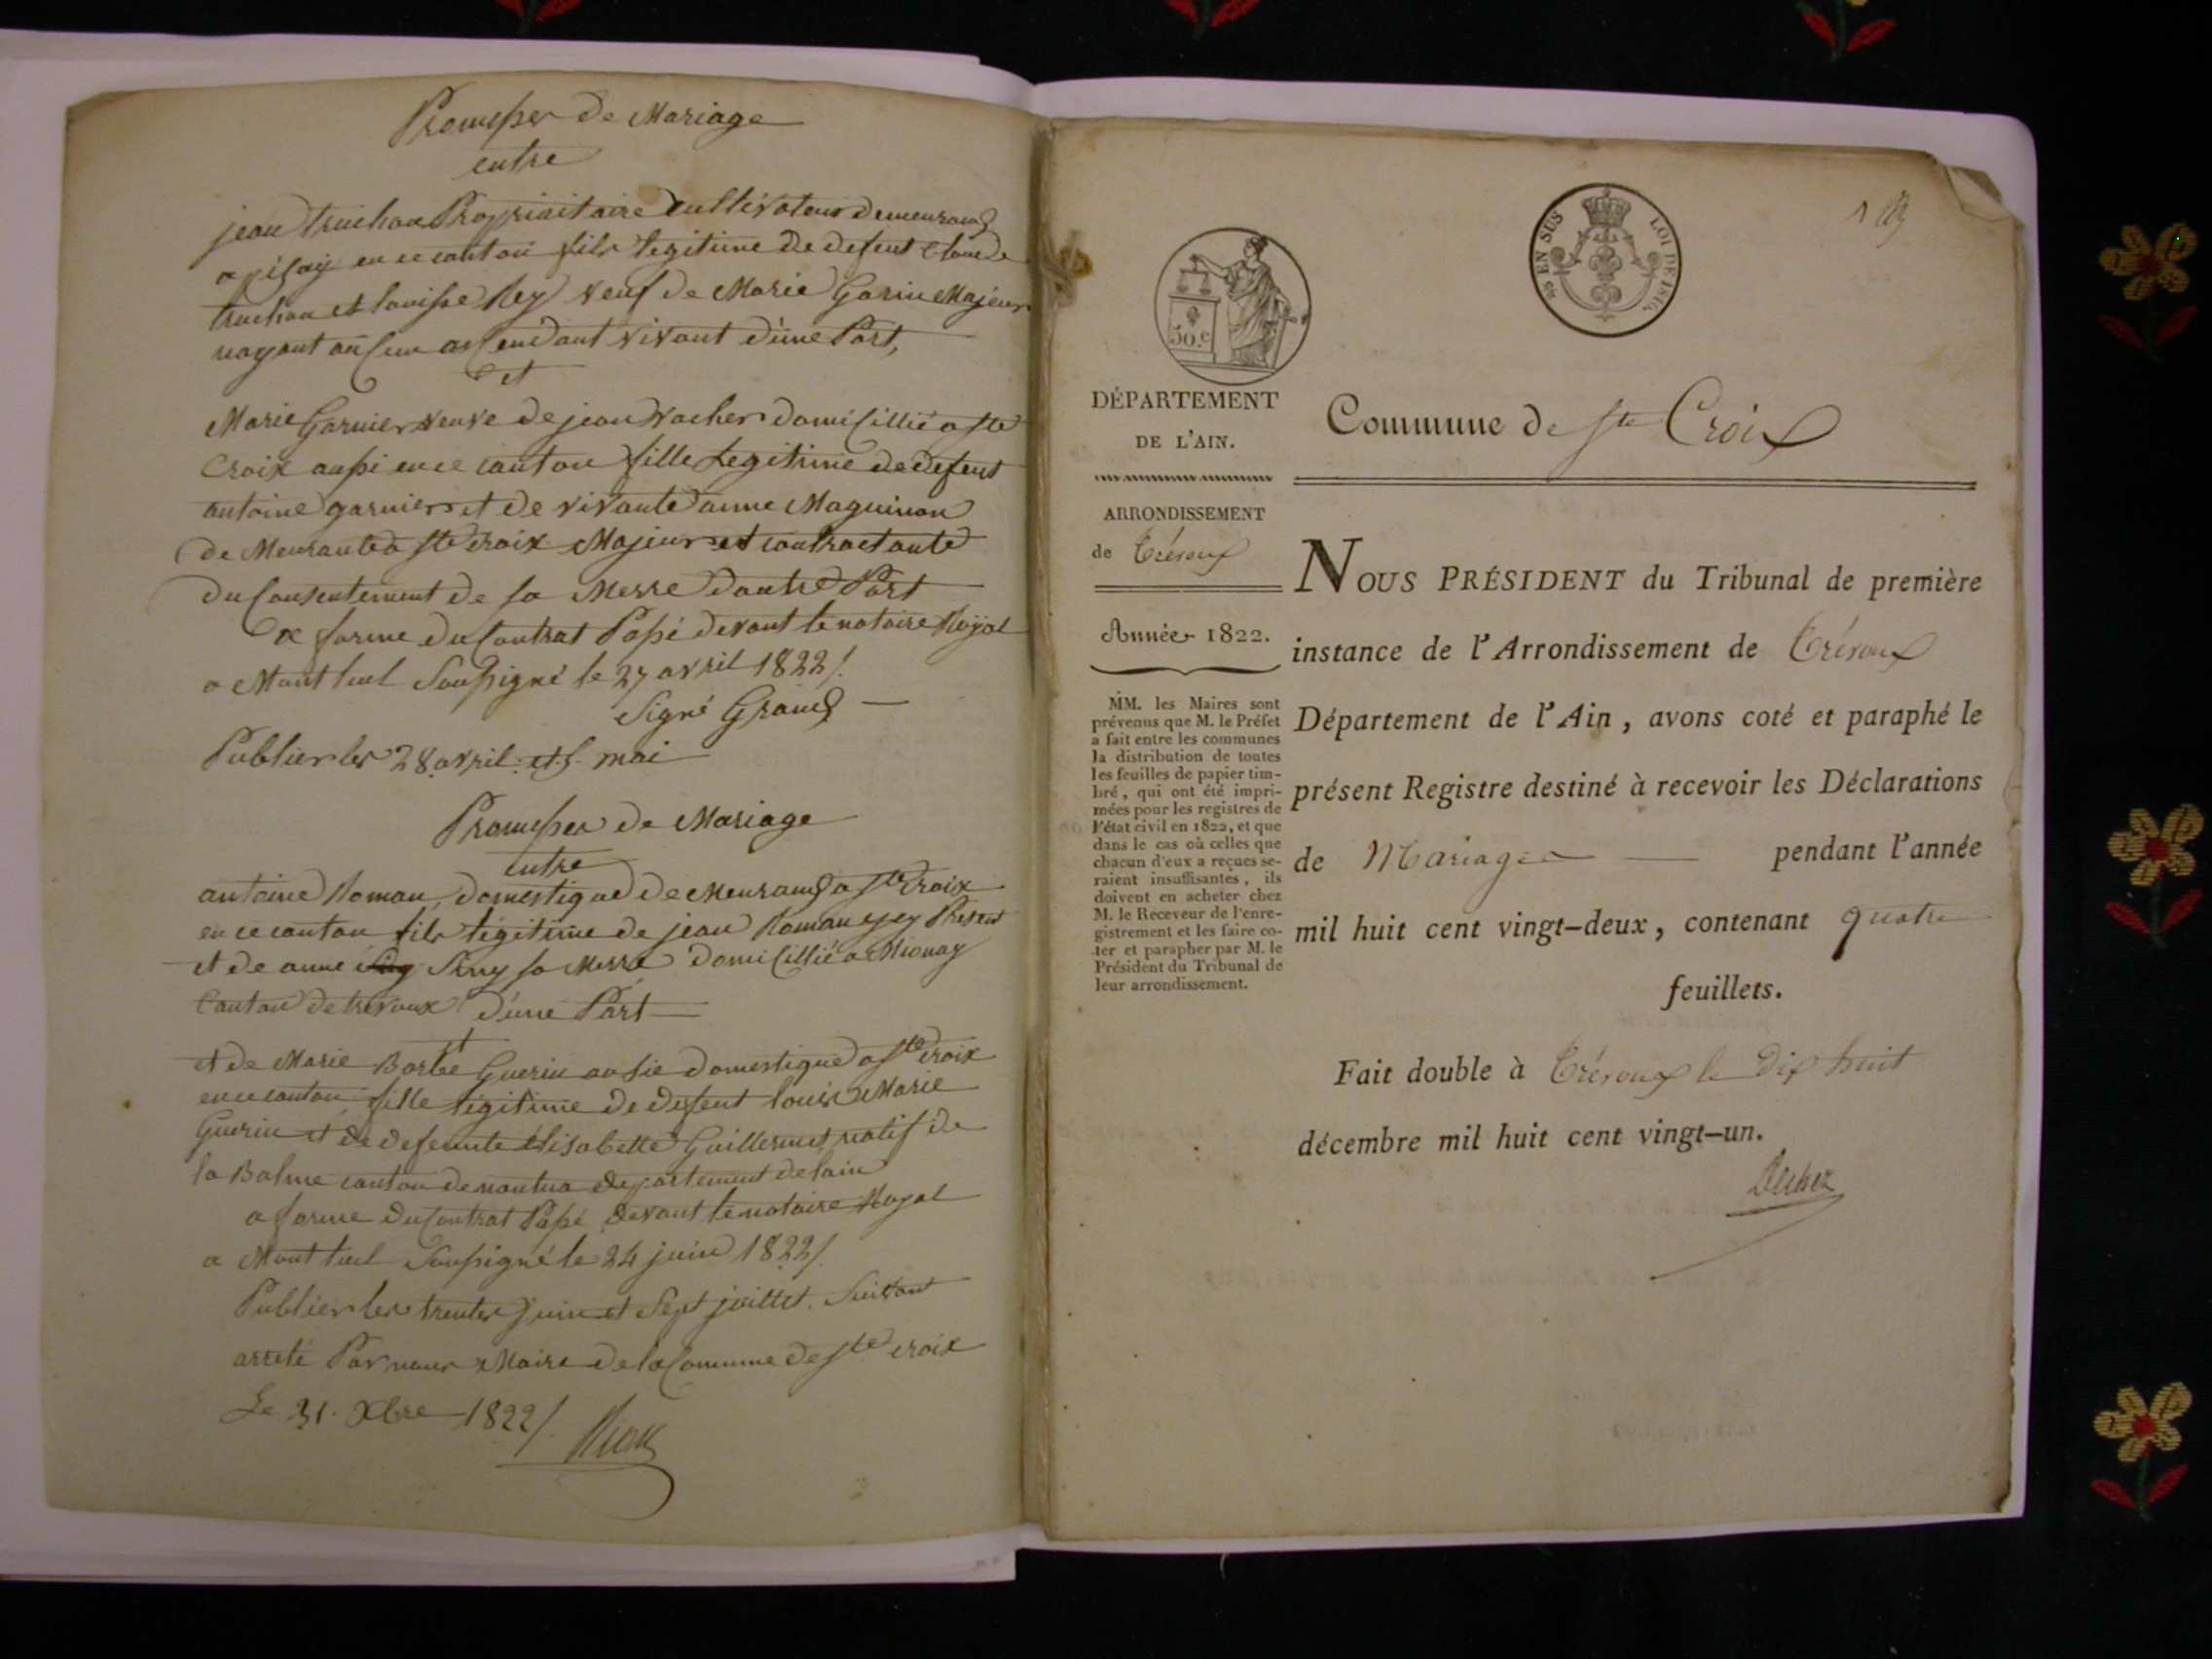 Promesses de Mariage
entre
jean truchon Proprieitaire Cultivateur demeurang
a pisay en ce canton fils legitime de defent Claude
truchon et louisse Rey veuf de Marie Garin Majeur
nayant auCun asCendant vivant d'une Part,
et
Marie Garnier veuve de jean vacher domiCillié a Ste
Croix aussi en ce canton fille Legitime de defent
antoine garnier et de vivante anne Maguinon
de Meurante a Ste Croix Majeur et contractante
du Consentement de sa Merre dautre Part
a forme du Contrat Passé devant le notaire Royal
a Mont luel Soussigné le 27 avril 1822/.
Signé Grand
Publier les 28 avril et 5 mai
Promesses de Mariage
entre
antoine Roman, domestique de Meurang a Ste Croix
en ce canton fils légitime de jean Roman yey Present
et de anne Siny sa Merre domiCillié a Mionay
Canton de trevoux d'une Part
et
et de Marie Barbe Guerin ausie domestique a Ste Croix
en ce canton fille légitime de defent louis Marie
Guerin et de defeunte Elisabette Guillermet natif de
la Balme canton de nantua departement de lain
a forme du Contrat Passé devant le notaire Royal
a Mont luel Soussigné le 24 juin 1822/.
Publier les trentes juin et Sept juillet Suivant
arreté Par nous Maire de la Commune de Ste Croix
Le 31. Xbre 1822/.
50.c
EN SUS
LOI DE 1816.
DÉPARTEMENT
DE L'AIN.
Commune de Ste Croix
ARRONDISSEMENT
de Trévoux
Année 1822.
MM. les Maires sont
prévenus que M. le Préfet
a fait entre les communes
la distribution de toutes
les feuilles de papier tim-
bré, qui ont été impri-
mées pour les registres de
l'état civil en 1822, et que
dans le cas où celles que
chacun d'eux a reçues se-
raient insuffisantes, ils
doivent en acheter chez
M. le Receveur de l'enre-
gistrement et les faire co-
ter et parapher par M. le
Président du Tribunal de
leur arrondissement.
NOUS PRÉSIDENT du Tribunal de première
instance de l'Arrondissement de Trévoux
Département de l'Ain, avons coté et paraphé le
présent Registre destiné à recevoir les Déclarations
de Mariages pendant l'année
mil huit cent vingt-deux, contenant quatre
feuillets.
Fait double à Trévoux le dix huit
décembre mil huit cent vingt-un.